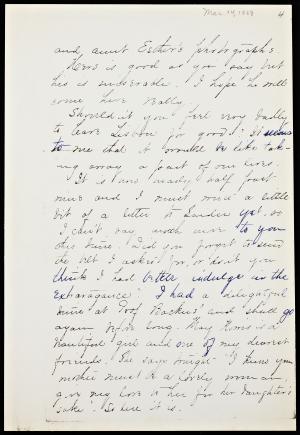 Mar. 14, 1868
4
and aunt Esther's photographs.
Hers is good as you say but
his is undesirable. I hope he will
come here really.
Shouldn't you feel very badly
to leave Lisbon for good? It seems
to me that it would be like tak-
ing away a part of our lives.
It is now nearly half past
nine and I must write a little
bit of a letter to Landen yet, so
I can't say much more to you
this time. Did you forget to send
the belt I asked for, or don't you
think I had better indulge in the
extravagance? I had a delightful
time at Prof. Tracker's, and shall go
again before long. May is a
beautiful girl and one of my dearest
friends. She says tonight "I know your
mother must be a lovely woman,
give my love to her for her daughter's
sake". So here it is.